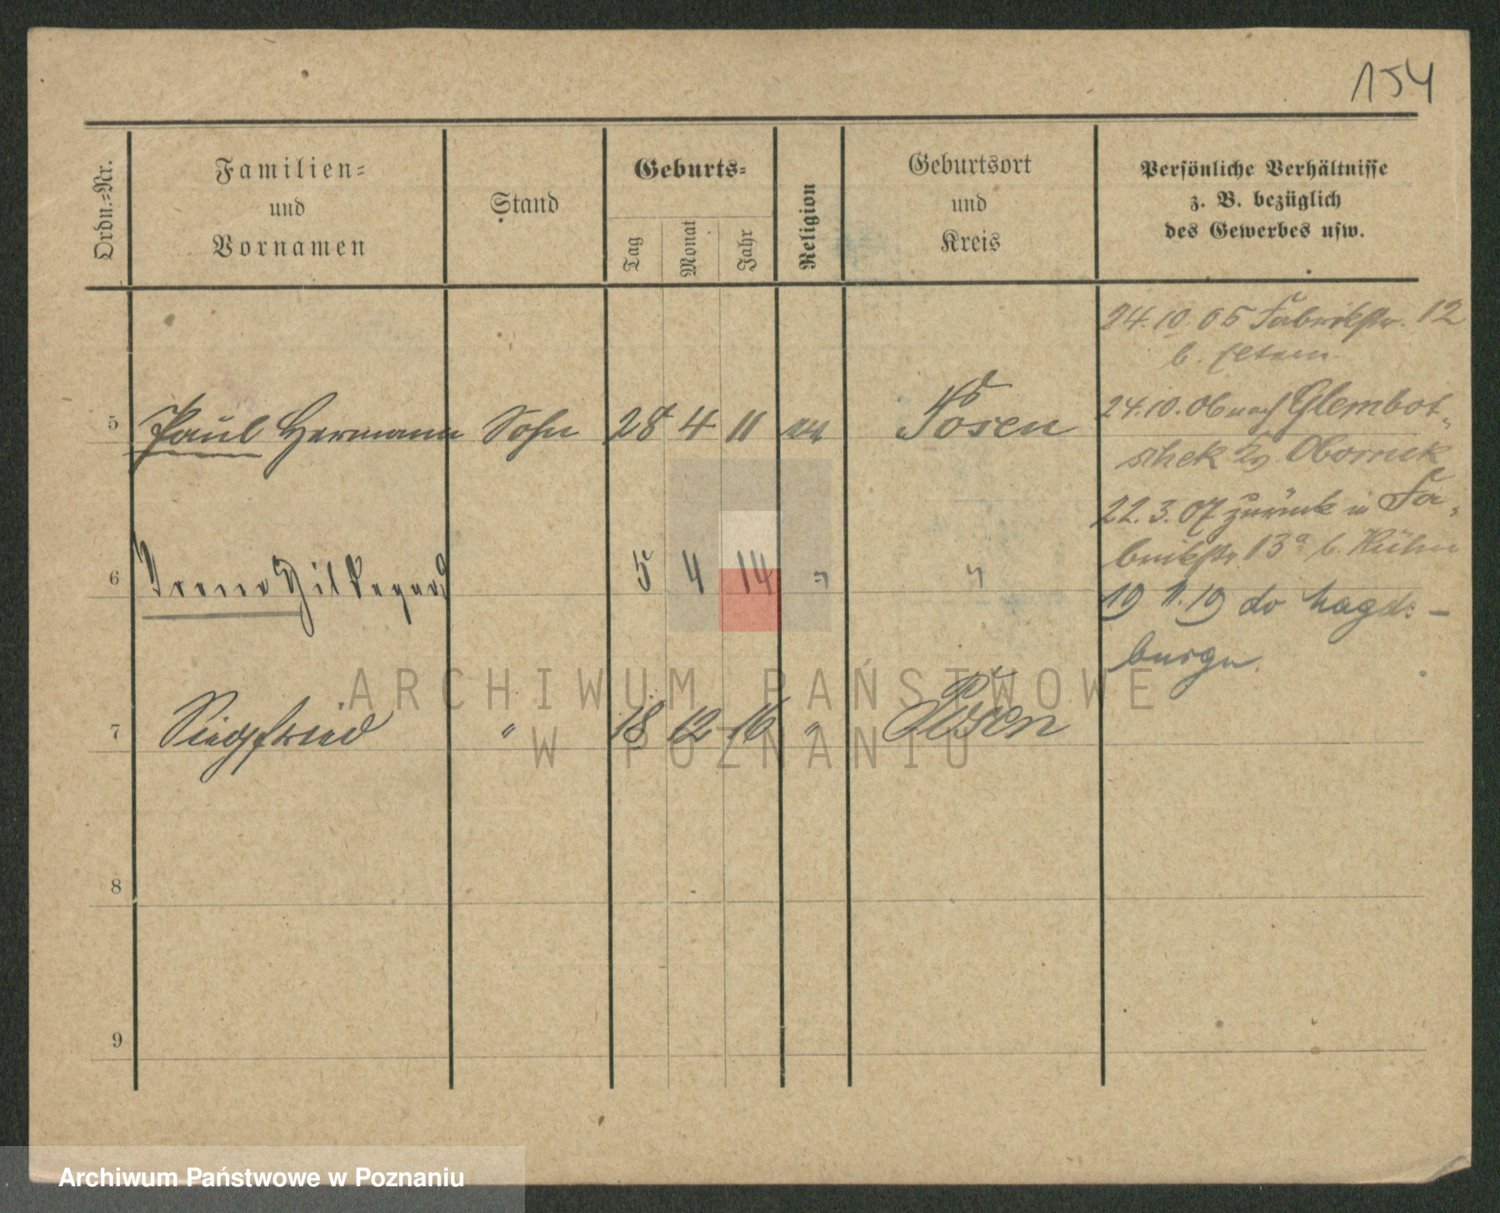 154
Ordn.=Nr.
Familien=
und
Vornamen
Stand
Geburts=
Tag
Monat
Jahr
Religion
Geburtsort
und
Kreis
Persönliche Verhältnisse
z. B. bezüglich
des Gewerbes usw.
24.10.05 Fabrikstr. 12
b. Eltern.
5 Paul Hermann Sohn 28 4 11 Posen
24.10.06 nach Glembot-
schek Obornik
22.3.07 zurück in Fa-
brikstr. 13a b. Kühn
6 Irene Hildegard 5 4 14 "
19 do Magde-
burg
7 Siegfried " 18 12 16 " Posen
8
9
ARCHIWUM PAŃSTWOWE
W POZNANIU
Archiwum Państwowe w Poznaniu